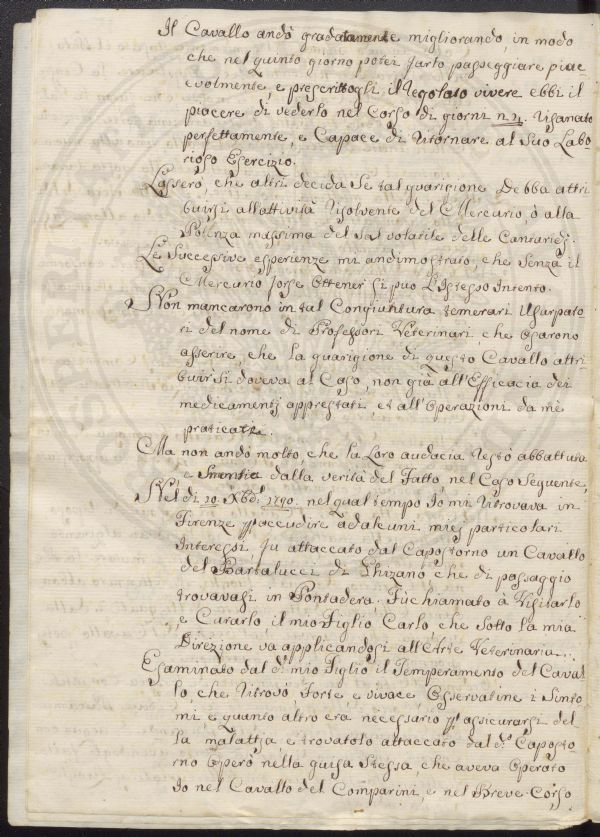 Il Cavallo andò gradatamente migliorando, in modo
che nel quinto giorno potei farlo passeggiare piac=
evolmente, e prescrittogli il regolato vivere ebbi il
piacere di vederlo nel Corso di giorni n. 21. risanato
perfettamente, e Capace di ritornare al Suo Labo=
rioso Esercizio.
Lasserò, che altri decida Se tal guarigione Debba attri
buirsi all'attività risolvente del Mercurio, ò alla
Potenza massima del Sal volatile delle Cantaridj.
Le Successive esperienze mi àn dimostrato, che Senza il
Mercurio forse Ottener si può L'Istesso Intento.
Non mancarono in tal Congiuntura temerari Usurpato
ri del nome di Professori Veterinari, che Osarono
asserire, che la guarigione di questo Cavallo attri
buirsi doveva al Caso, non già all'Efficacia dei
medicamentj apprestati, et all'Operazioni da mè
praticate.
Ma non andò molto che la Loro audacia restò abbattuta
e Smentita dalla verità del Fatto, nel Caso Seguente,
Nel dì 10 Xbr. 1790. nel qual tempo Io mi ritrovava in
Firenze p accudire àd alcuni miej particolari
Interessi fu attaccato dal Capostorno un Cavallo
del Bartalucci di Ghizano, che di passaggio
trovavasi in Pontadera. Fù chiamato à Visitarlo
e Curarlo, il mio Figlio Carlo, che Sotto la mia
Direzione va applicandosi all'Arte Veterinaria..
Esaminato dal d. mio Figlio il Temperamento del Caval
lo, che ritrovò forte, e vivace Osservatine i Sinto
mi, e quanto altro era necessario p assicurarsi del
la malattja, e trovatolo attaccato dal d. Caposto
rno Operò nella guisa Stessa, che aveva Operato
Io nel Cavallo del Comparini, e nel Breve Corso